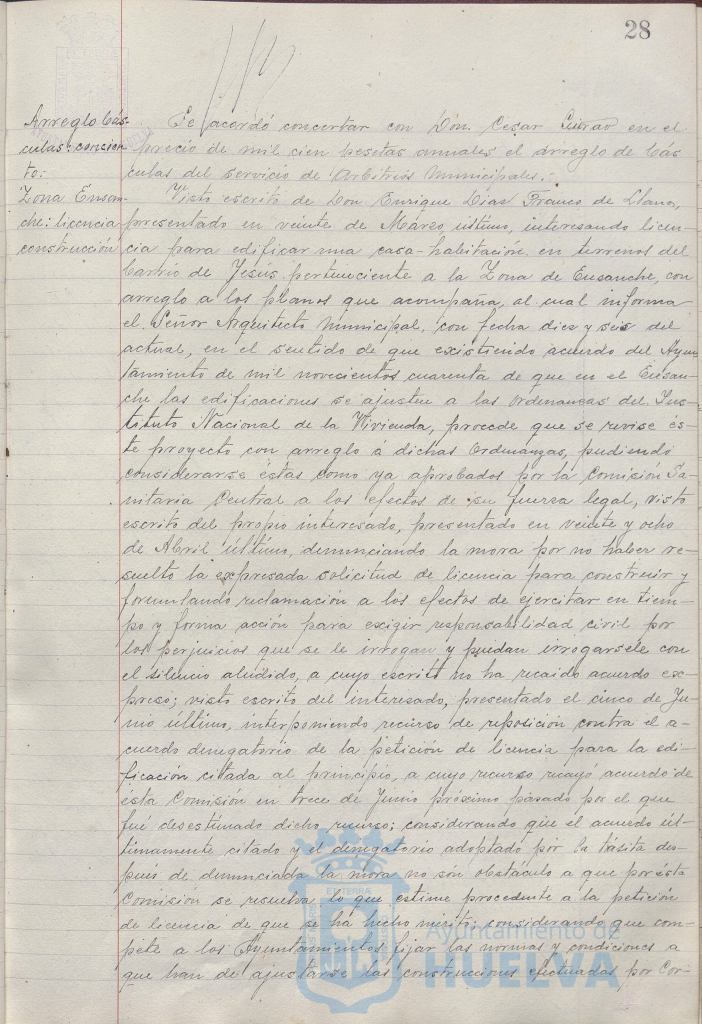 28
Arreglo bás-
culas: concier
to:
Zona Ensan-
che: licencia
construcción
Se acordó concertar con Don Cesar en el
precio de mil cien pesetas anuales el arreglo de bás
culas del servicio de Arbitrios Municipales.
Visto escrito de Don Enrique Dias Franco de Llanos,
presentado en veinte de Márzo último, interesando licen-
cia para edificar una casa-habitación en terrenos del
barrio de Jesús perteneciente a la Zona de Ensanche, con
arreglo a los planos que acompaña, al cual informa
el Señor Arquitecto Municipal, con fecha dies y seis del
actual, en el sentido de que existiendo acuerdo del Ayun
tamiento de mil novecientos cuarenta de que en el Ensan-
che las edificaciones se ajusten a las Ordenanzas del Ins-
tituto Nacional de la Vivienda, procede que se revise és-
te proyecto con arreglo á dichas Ordenanzas, pudiendo
considerarse éstas como ya aprobados por la Comisión Sa-
nitaria Central a los efectos de su fuerza legal, visto
escrito del propio interesado, presentado en veinte y ocho
de Abril último, denunciando la mora por no haber re-
suelto la expresada solicitud de licencia para construir y
formulando reclamación a los efectos de ejercitar en tiem-
po y forma acción para exigir responsabilidad civil por
los perjuicios que se le irrogan y puedan irrogarsele con
el silencio aludido, a cuyo escrito no ha recaido acuerdo ex-
preso; visto escrito del interesado, presentado el cinco de Ju-
nio último, interponiendo recurso de reposición contra el a-
cuerdo denegatorio de la petición de licencia para la edi-
ficación citada al principio, a cuyo recurso recayó acuerdo de
ésta Comisión en trece de Junio próximo pasado por el que
fué desestimado dicho recurso; considerando que el acuerdo úl-
timamente citado y el denegatorio adoptado por la tásita des-
pués de denunciada la mora no són obstáculo a que por ésta
Comisión se resuelva lo que estime procedente a la petición
de licencia de que se ha hecho mérito; considerando que com-
pete a los Ayuntamientos fijar las normas y condiciones a
que han de ajustarse las construcciones efectuadas por Cor-
Ayuntamiento de
HUELVA